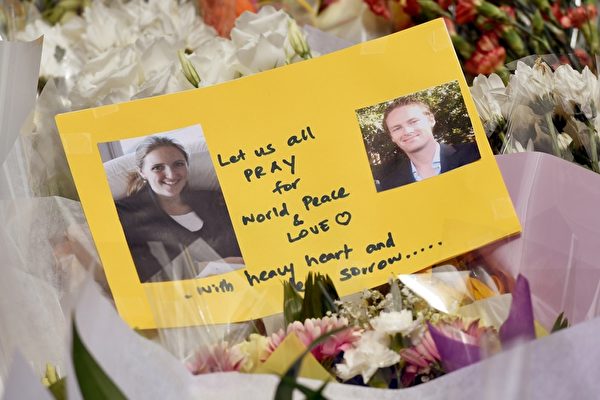 Let us all
PRAY
for
World Peace
&
LOVE ♡
- With heavy heart and
sorrow.....